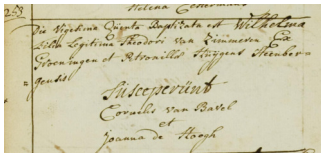 258
Die Vigesima Quinta Baptizata est Wilhelma
Filia Legitima Theodori van Ex
Groeningen et Petronilla Huijgens Steenber-
gensis
Susceperunt
Cornelis van Bavel
et
Joanna de Hoogh